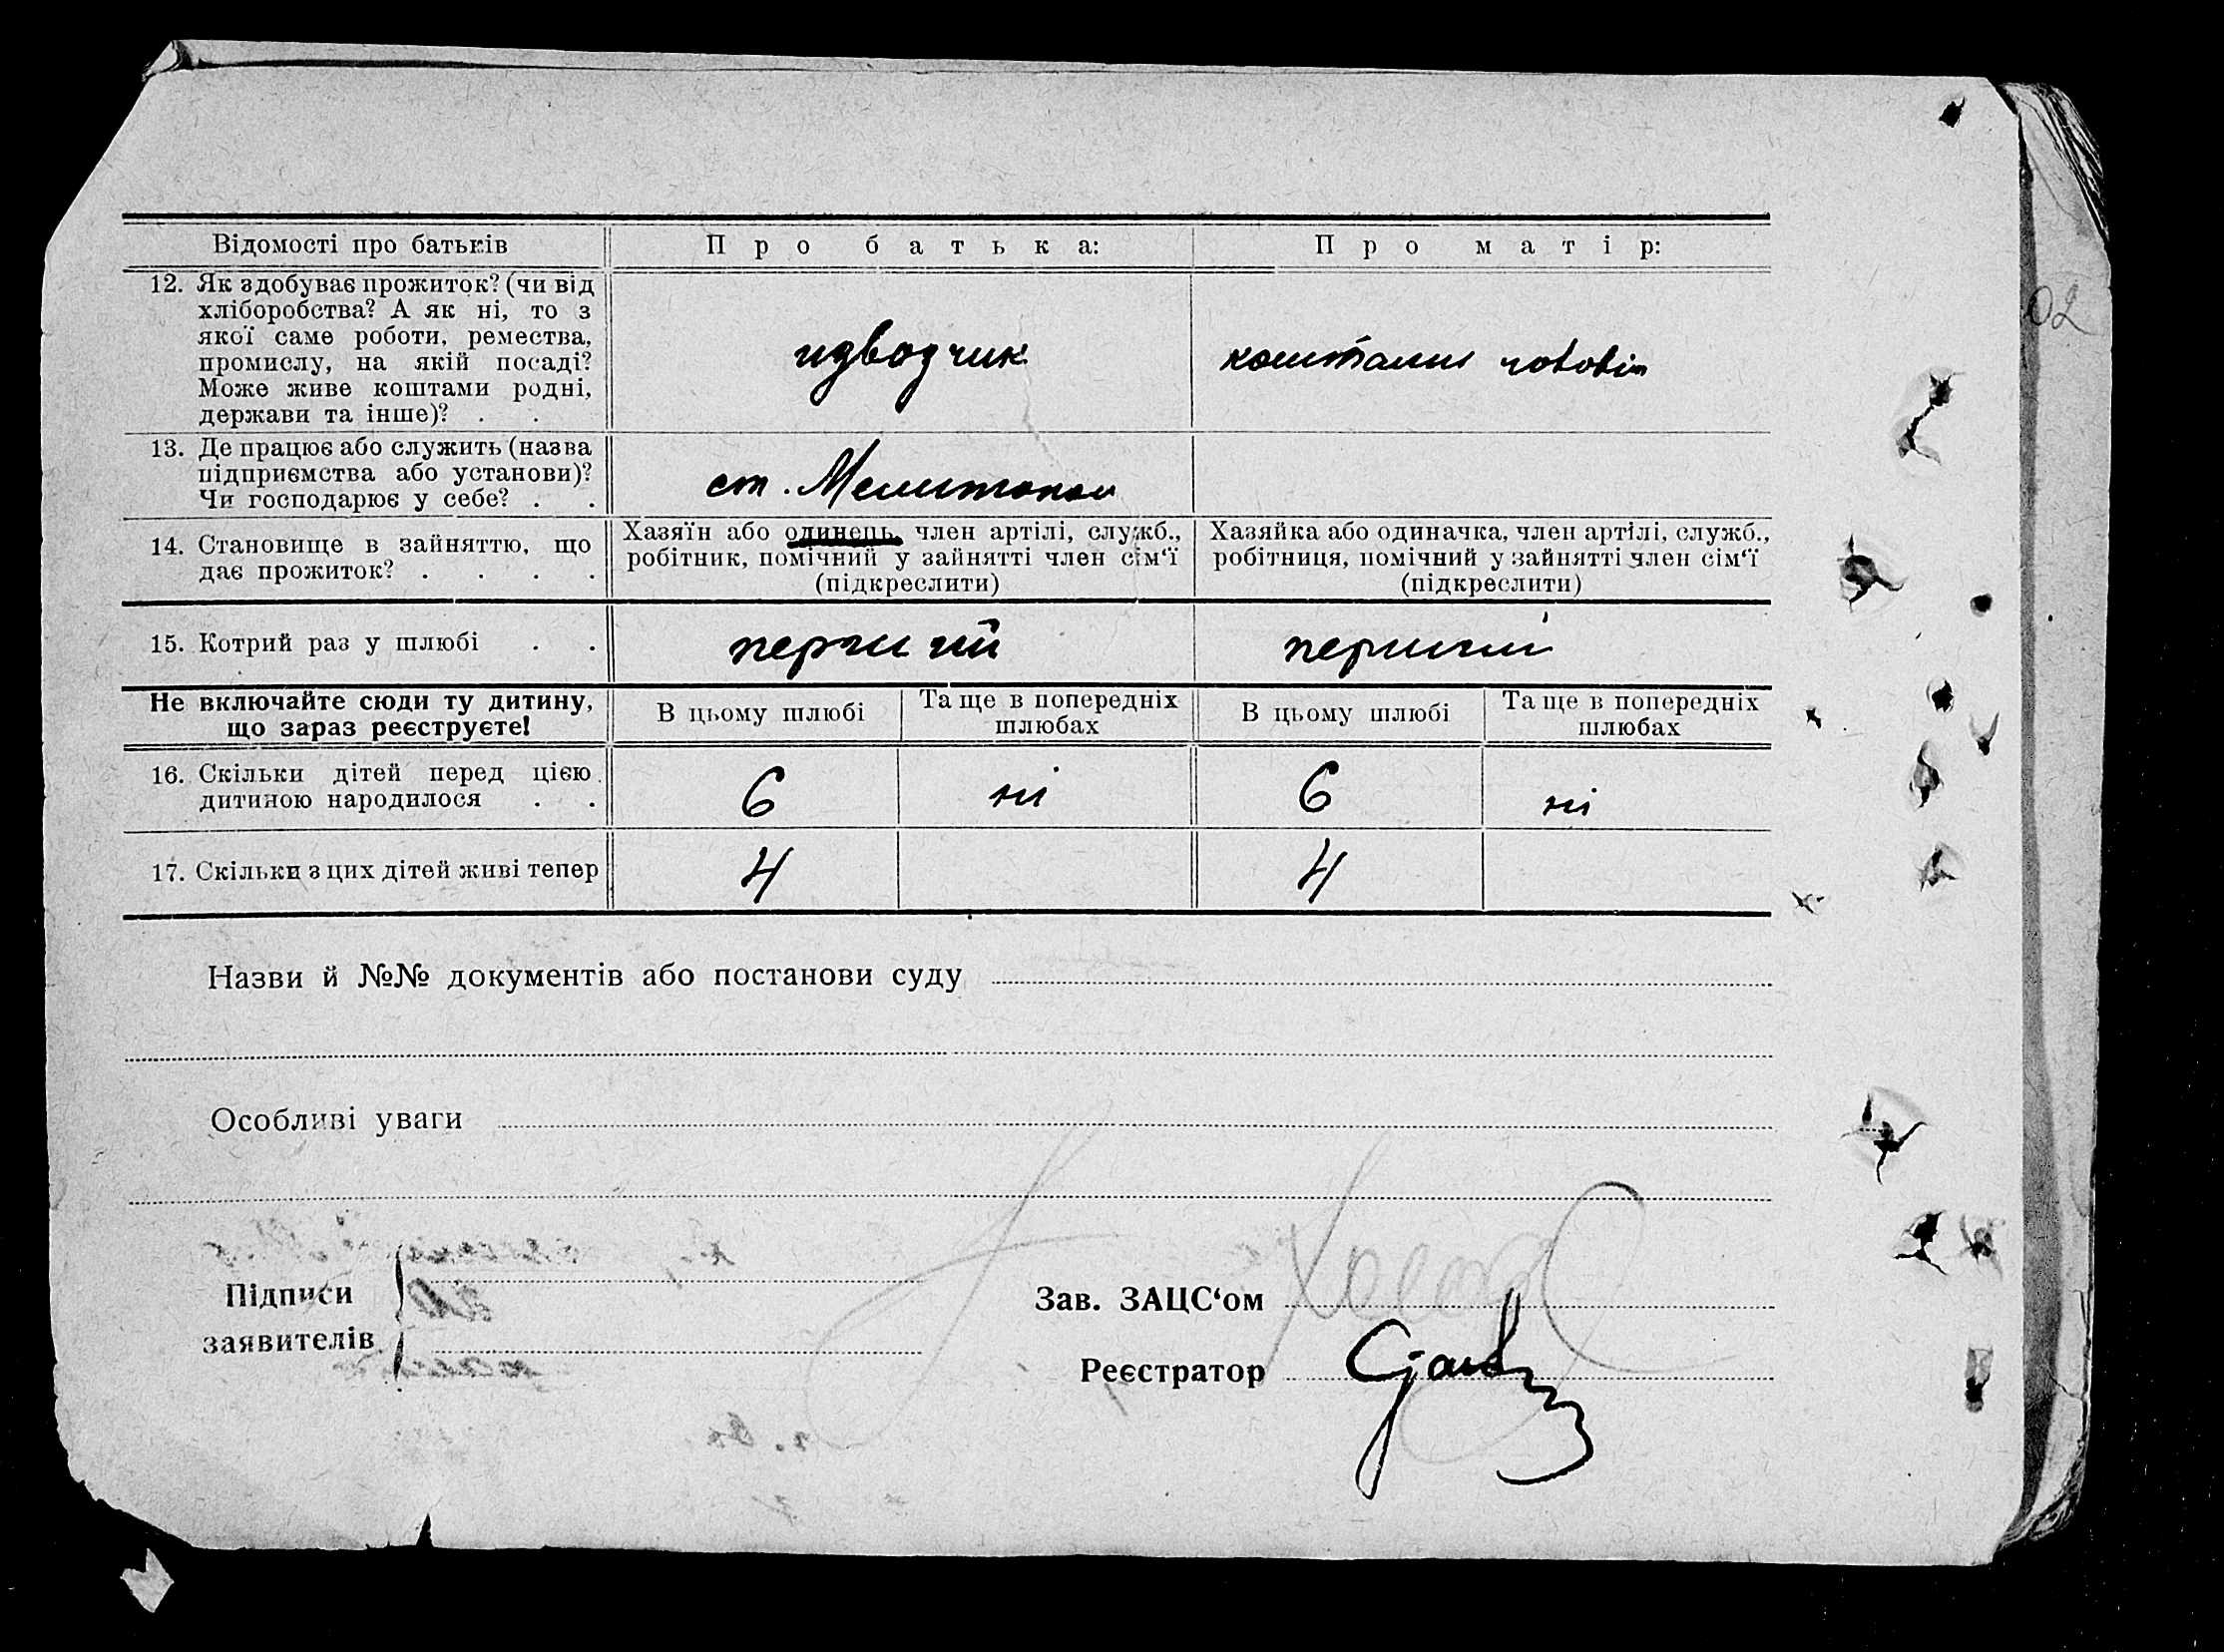 Відомості про батьків
Про батька:
Про матір:
12. Як здобуває прожиток? (чи від
хліборобства? А як ні, то з
якої саме роботи, ремества,
промислу, на якій посаді?
Може живе коштами родні,
держави та інше)? . .
ст. Мелитополь
13. Де працює або служить (назва
підприємства або установи)?
Чи господарює у себе? . .
14. Становище в зайняттю, що
дає прожиток? . . . .
Хазяїн або одинець, член артілі, служб.,
робітник, помічний у зайнятті член сім‘ї
(підкреслити)
Хазяйка або одиначка, член артілі, служб.,
робітниця, помічний у зайнятті член сім‘ї
(підкреслити)
15. Котрий раз у шлюбі . .
перший
перший
Не включайте сюди ту дитину,
що зараз реєструєте!
В цьому шлюбі
Та ще в попередніх
шлюбах
В цьому шлюбі
Та ще в попередніх
шлюбах
16. Скільки дітей перед цією
дитиною народилося . .
6
ні
6
ні
17. Скільки з цих дітей живі тепер
4
4
Назви й №№ документів або постанови суду
Особливі уваги
Підписи
заявителів
Зав. ЗАЦС‘ом
Реєстратор
02